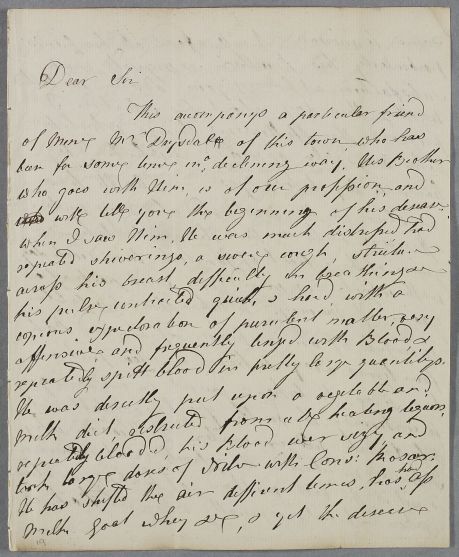 Dear Sir
This accompanys a particular friend
of mine Mr Drysdale of this town who has
been for some time in a declining way, His Brother
who goes with Him, is of our profession, and
will tell you the beginning of his disease
when I saw Him, He was much distressed had
repeated shiverings, a severe cough, stricture
across his breast difficulty in breathing &
his pulse contracted quick, & hard, with a
copious expectoration of purulent matter, very
offensive and frequently tinged with Blood &
repeatedly spitt blood in pretty large quantitys.
He was directly put upon a vegetable and
milk diet restricted from all heating liquors,
repeatedly blooded, his Blood very sizy, and
took large doses of Nitre with Cons: Rosar:
He has shifted the air different times, has had ass
milk goat whey &c, & yet the disease
19